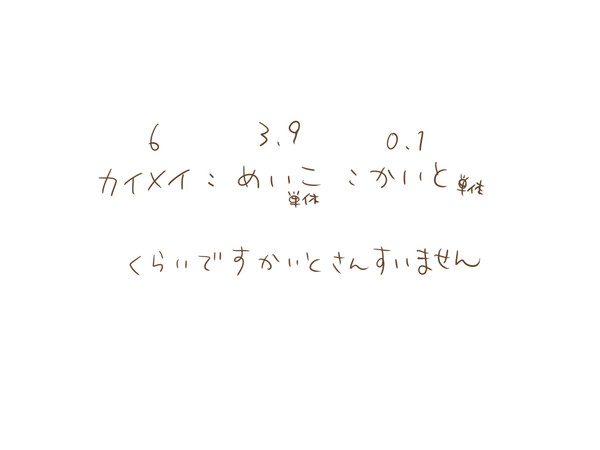 6 3.9 0.1
カイメイ：めいこ：かいと単体
単体
くらいですかいとさんすいません